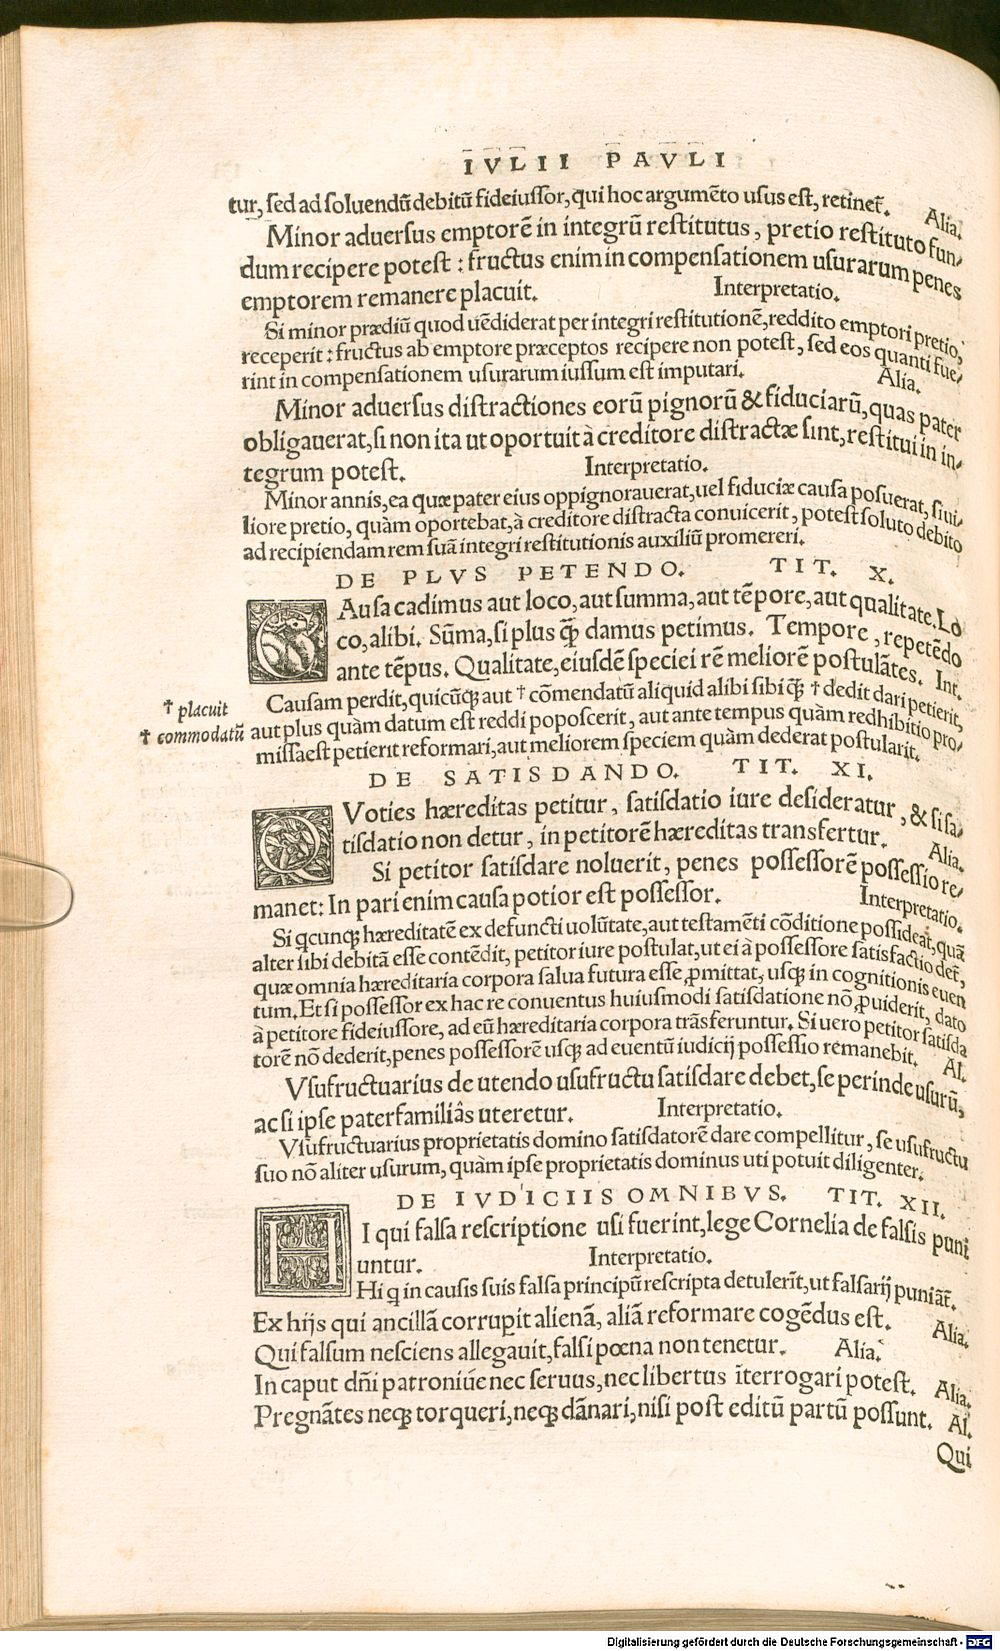 IVLII PAVLI
tur, sed ad soluendũ debitũ fideiussor, qui hoc argumẽto usus est, retinet̃. Alia.
Minor aduersus emptorẽ in integrũ restitutus, pretio restituto fun/
dum recipere potest : fructus enim in compensationem usurarum penes
emptorem remanere placuit. Interpretatio.
Si minor prædiũ quod uẽdiderat per integri restitutionẽ, reddito emptori pretio,
receperit : fructus ab emptore præceptos recipere non potest, sed eos quanti fue/
rint in compensationem usurarum iussum est imputari. Alia.
Minor aduersus distractiones eorũ pignorũ & fiduciarũ, quas pater
obligauerat, si non ita ut oportuit à creditore distractæ sint, restitui in in/
tegrum potest. Interpretatio.
Minor annis, ea quæ pater eius oppignorauerat, uel fiduciæ causa posuerat, si ui/
liore pretio, quàm oportebat, à creditore distracta conuicerit, potest soluto debito
ad recipiendam rem suã integri restitutionis auxiliũ promereri.
DE PLVS PETENDO. TIT. X.
CAusa cadimus aut loco, aut summa, aut tẽpore, aut qualitate. Lo
co, alibi. Sũma, si plus q̃ damus petimus. Tempore, repetẽdo
ante tẽpus. Qualitate, eiusdẽ speciei rẽ meliorẽ postulãtes. Int.
Causam perdit, quicũq; aut † cõmendatũ aliquid alibi sibi q̃ † dedit dari petierit,
† placuit
† commodatũ
aut plus quàm datum est reddi poposcerit, aut ante tempus quàm redhibitio pro/
missa est petierit reformari, aut meliorem speciem quàm dederat postularit.
DE SATISDANDO. TIT. XI.
QVoties hæreditas petitur, satisdatio iure desideratur, & si sa/
tisdatio non detur, in petitorẽ hæreditas transfertur. Alia.
Si petitor satisdare noluerit, penes possessorẽ possessio re/
manet: In pari enim causa potior est possessor. Interpretatio.
Si qcunq; hæreditatẽ ex defuncti uolũtate, aut testamẽti cõditione possideat, quã
alter sibi debitã esse contẽdit, petitor iure postulat, ut ei à possessore satisfactio det̃,
quæ omnia hæreditaria corpora salua futura esse ꝓmittat, usq; in cognitionis euen
tum. Et si possessor ex hac re conuentus huiusmodi satisdatione nõ ꝓuiderit, dato
à petitore fideiussore, ad eũ hæreditaria corpora trãsferuntur. Si uero petitor satisda
torẽ nõ dederit, penes possessorẽ usq; ad euentũ iudicij possessio remanebit. Al.
Vsufructuarius de utendo usufructu satisdare debet, se perinde usurũ,
ac si ipse paterfamiliâs uteretur. Interpretatio.
Vsufructuarius proprietatis domino satisdatorẽ dare compellitur, se usufructu
suo nõ aliter usurum, quàm ipse proprietatis dominus uti potuit diligenter.
DE IVDICIIS OMNIBVS. TIT. XII.
HI qui falsa rescriptione usi fuerint, lege Cornelia de falsis puni
untur. Interpretatio.
Hi q in causis suis falsa principũ rescripta detulerĩt, ut falsarij puniãt̃.
Ex hijs qui ancillã corrupit alienã, aliã reformare cogẽdus est. Alia.
Qui falsum nesciens allegauit, falsi pœna non tenetur. Alia.
In caput dñi patroniũe nec seruus, nec libertus ĩterrogari potest. Alia.
Pregnãtes neq; torqueri, neq; dãnari, nisi post editũ partũ possunt. Al.
Qui
Digitalisierung gefördert durch die Deutsche Forschungsgemeinschaft - DFG